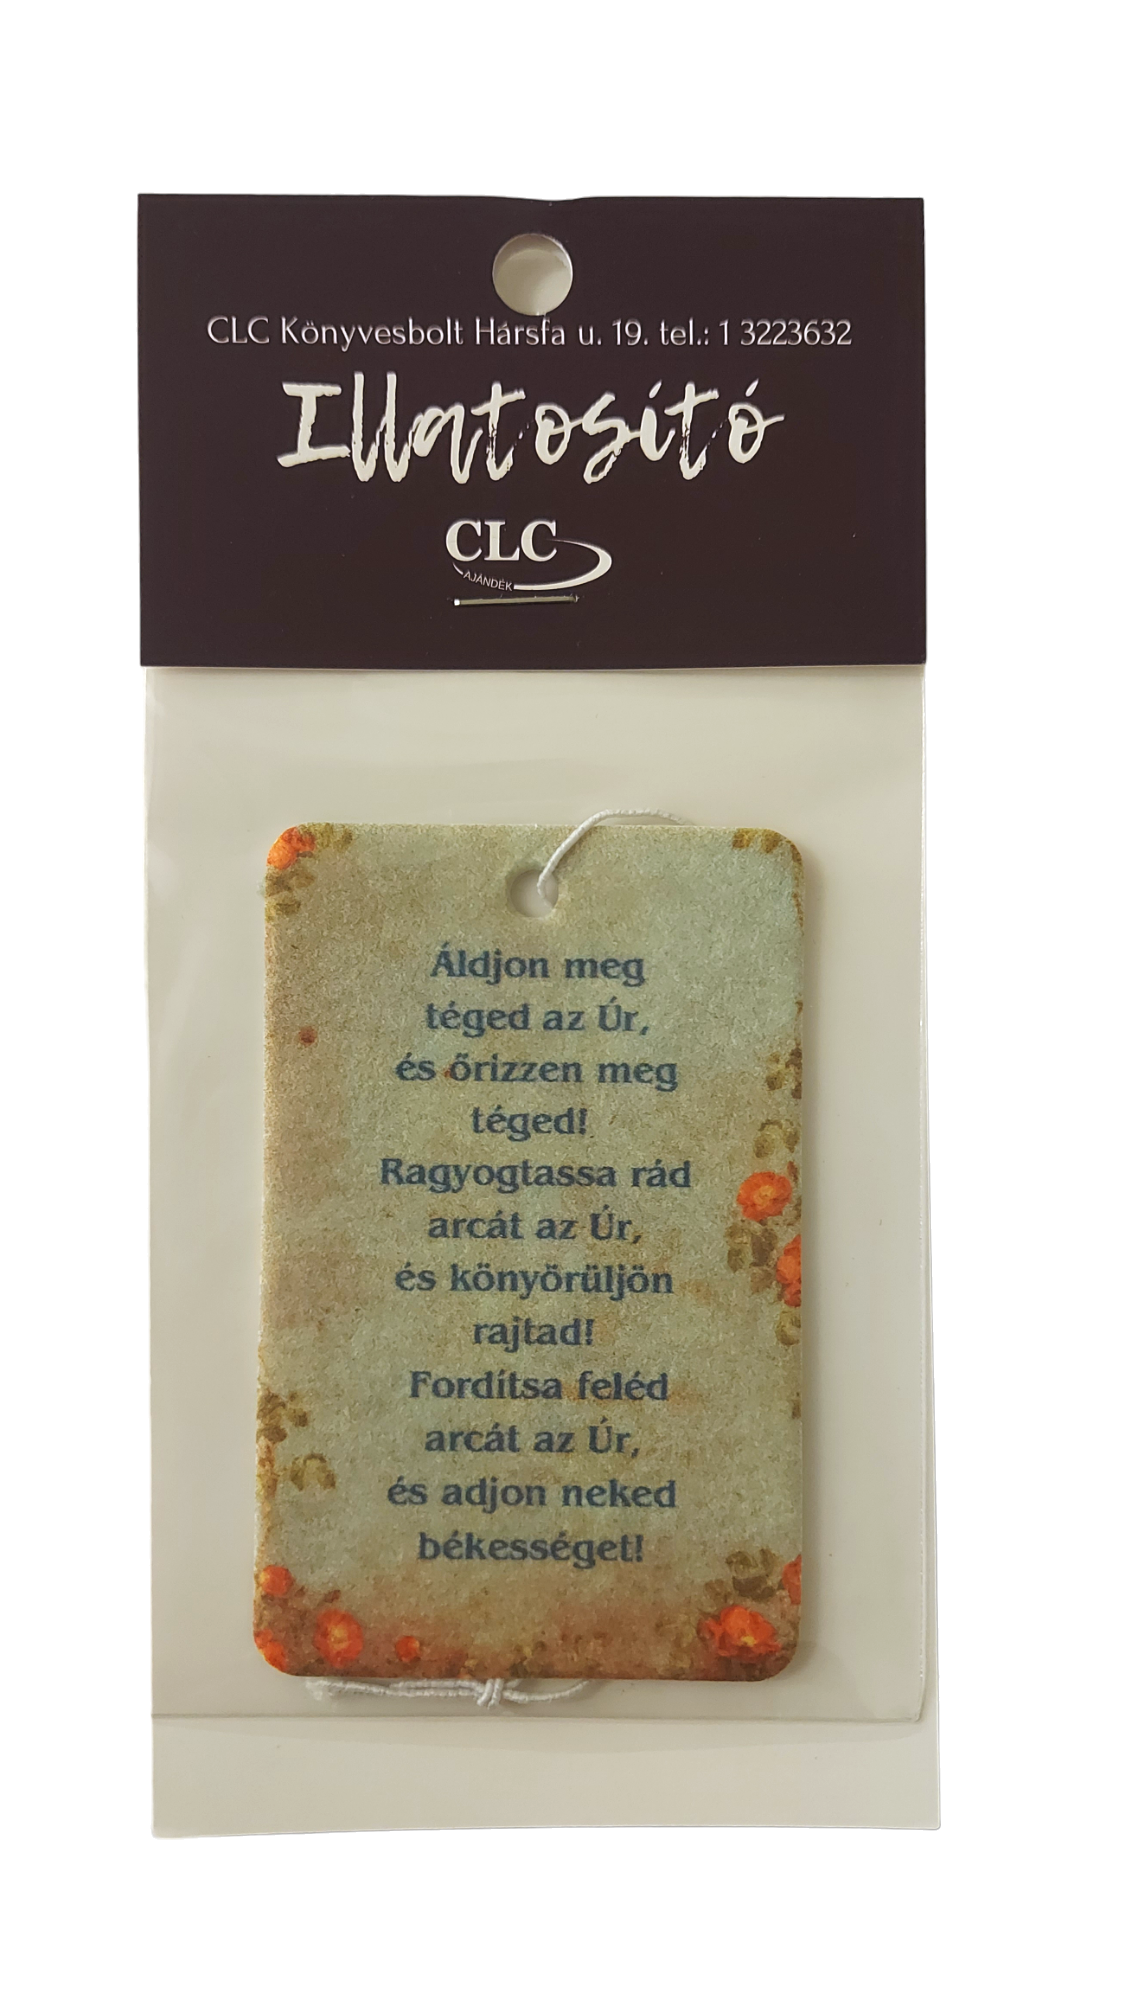 CLC Könyvesbolt Hársfa u. 19. tel.: 1 3223632
Illatosító
CLC
AJÁNDÉK
Áldjon meg
téged az Úr,
és őrizzen meg
téged!
Ragyogtassa rád
arcát az Úr,
és könyörüljön
rajtad!
Fordítsa feléd
arcát az Úr,
és adjon neked
békességet!